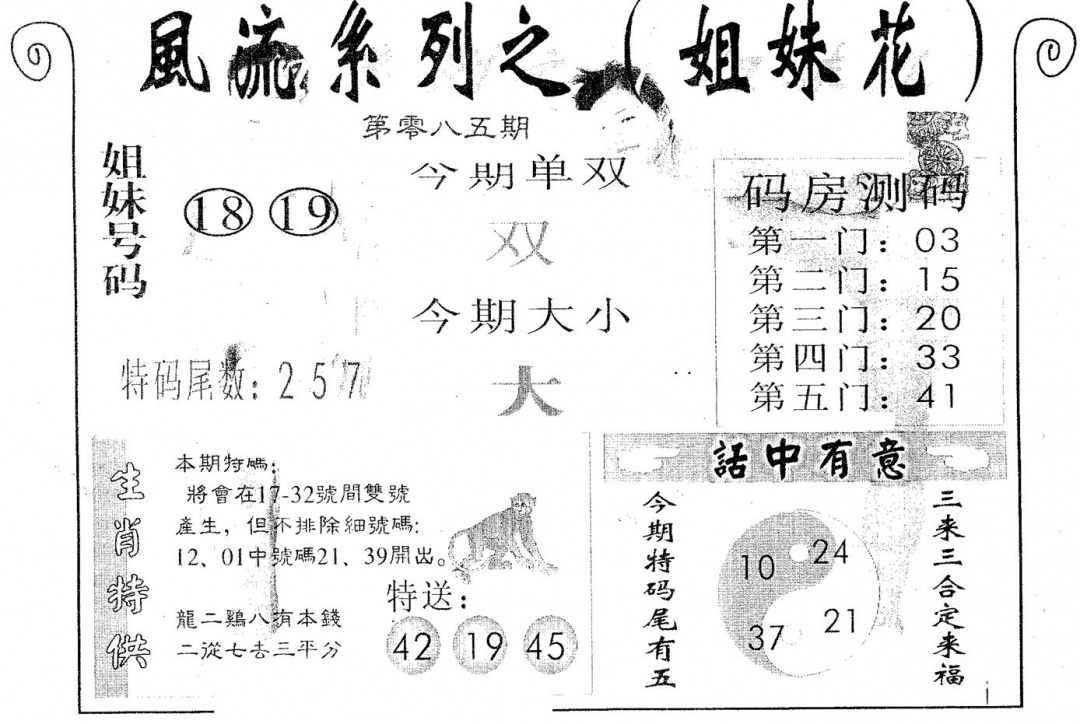 風流系列之(姐妹花)
第零八五期
姐妹号码
18 19
今期单双
双
今期大小
大
特码尾数：257
码房测码
第一门：03
第二门：15
第三门：20
第四门：33
第五门：41
生肖特供
本期特碼：
將會在17-32號間雙號
產生，但不排除細號碼：
12、01中號碼21、39開出。
龍二鷄八有本錢
二從七去三平分
特送：
42 19 45
話中有意
今期特码尾有五
10 24
37 21
三来三合定来福